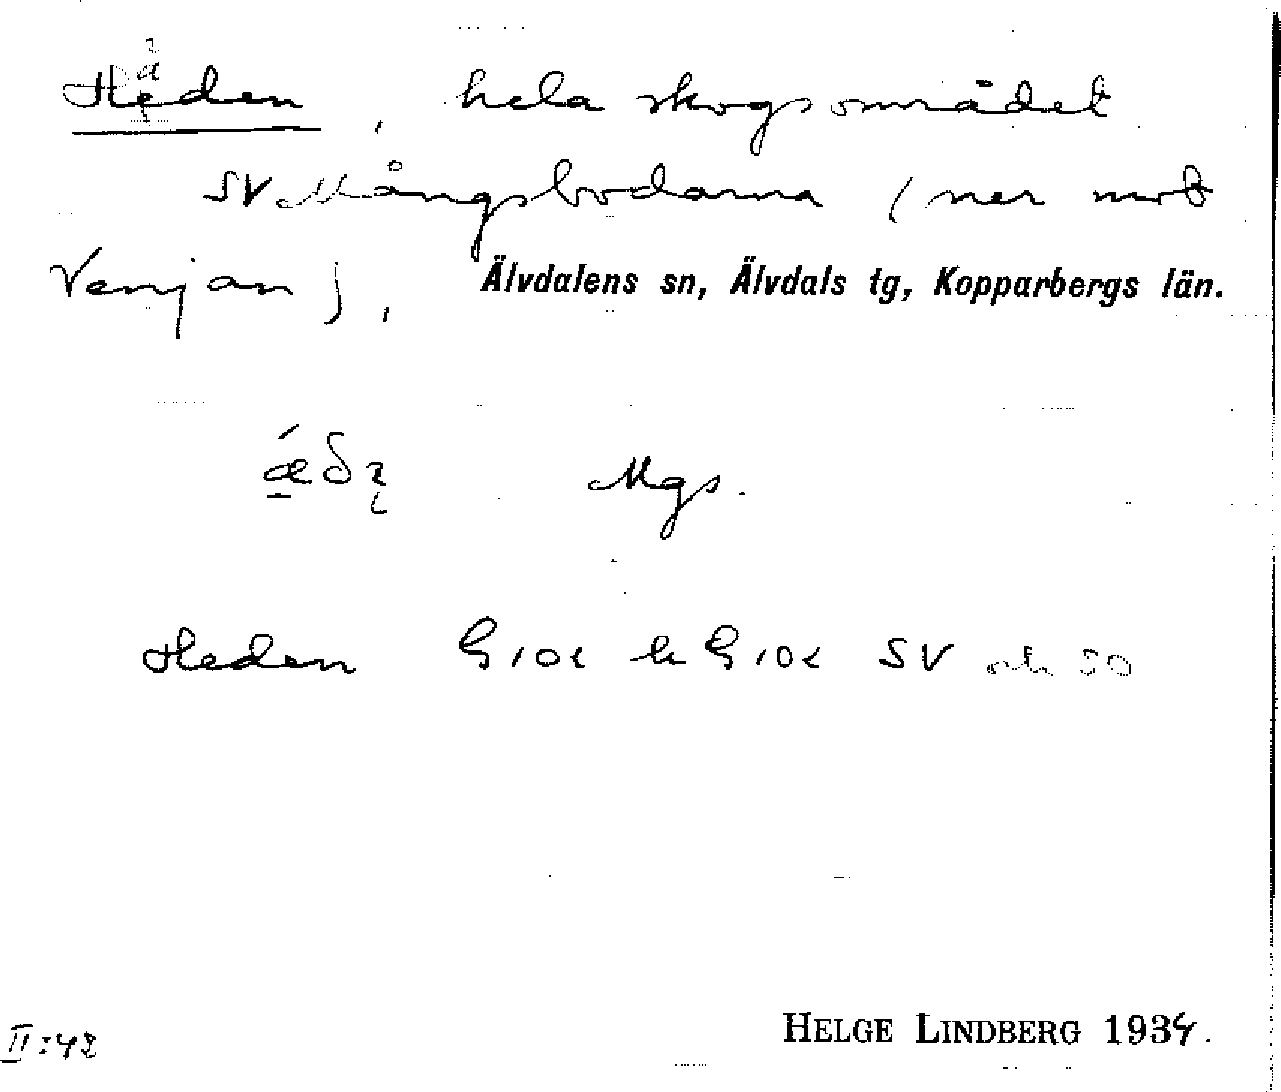 Heden, hela skogsområdet
SV Mångsbodarna (ner mot
Venjan), Älvdalens sn, Älvdals tg, Kopparbergs län.
Mgs.
Heden SV och SO
II:42 HELGE LINDBERG 1934.